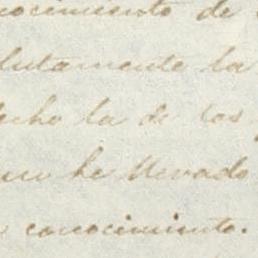 nocimiento de
lutamente la
echo la de las
he llevado
conocimiento.